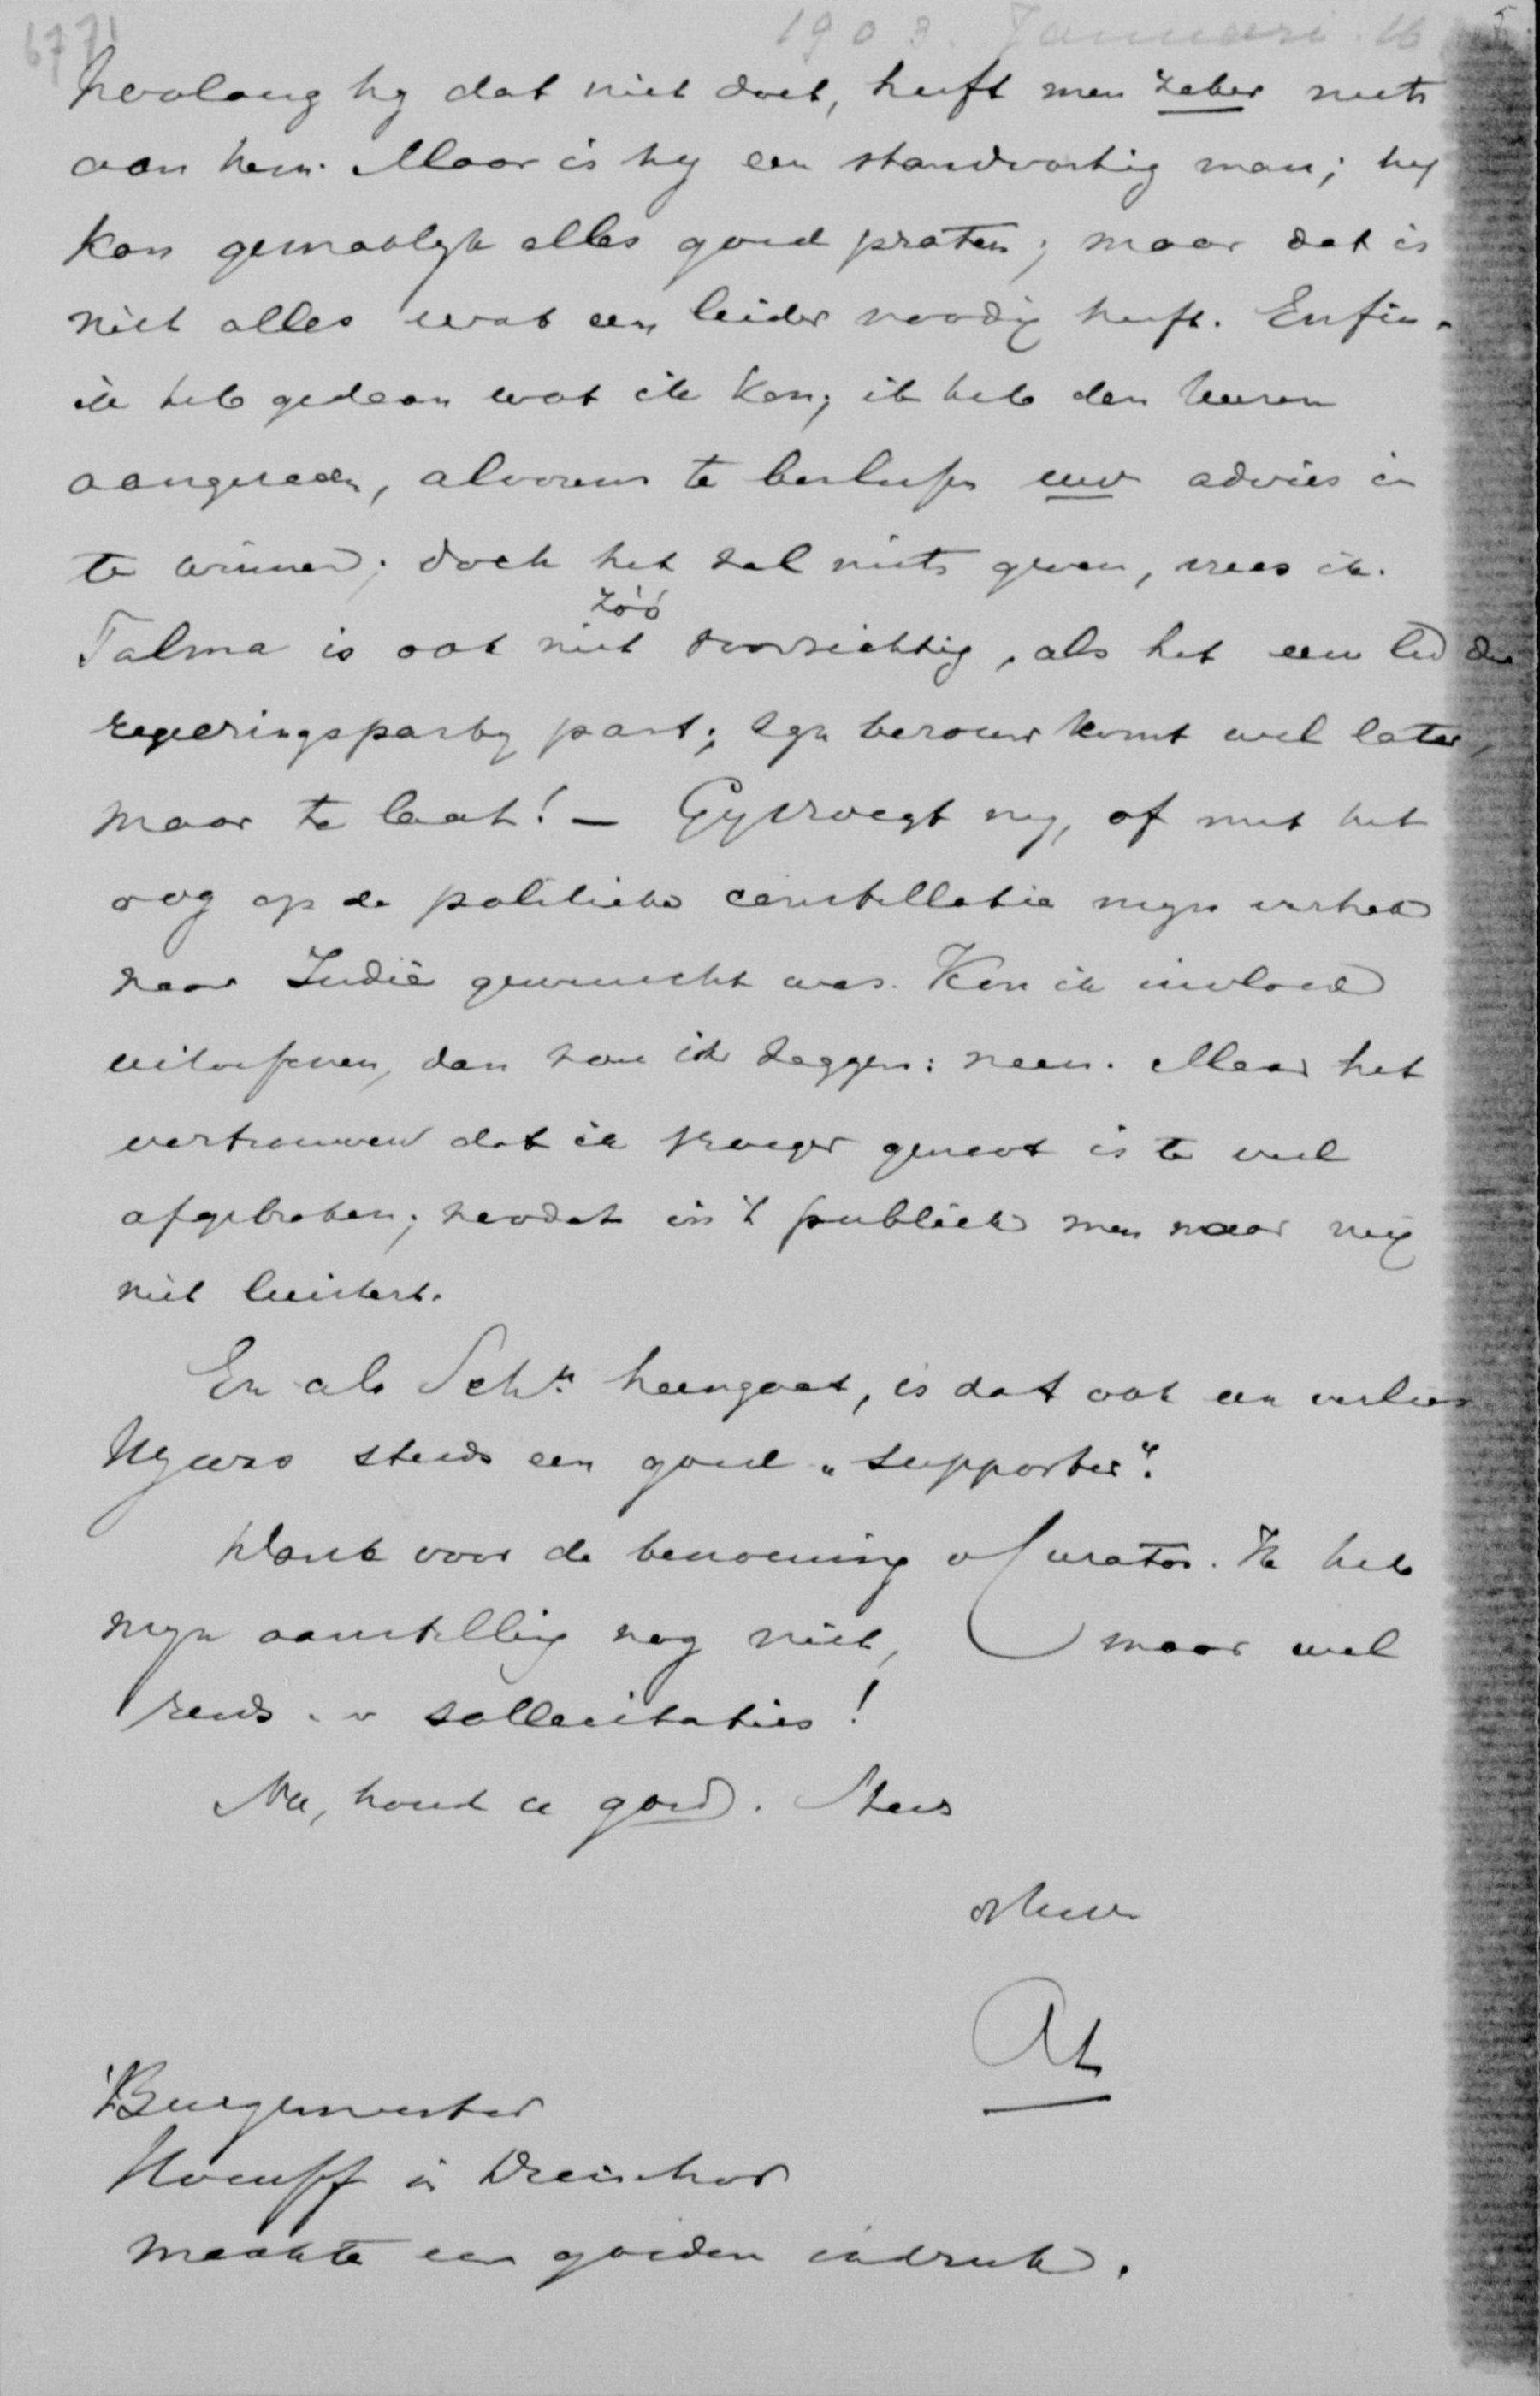 6771
1903. Januari. 16
5
Zoolang hy dat niet doet, heeft men zeker niets
aan hem. Maar is hy een standvastig man; hy
kan gemaklyk alles goed praten; maar dat is
niet alles wat een leider noodig heeft. Enfin.
ik heb gedaan wat ik kon; ik heb den heeren
aangeraden, alvorens te beslissen uw advies in
te winnen; doch het zal niets geven, vrees ik.
Talma is ook niet zóó voorzichtig, als het een lid der
regeeringsparty past; zyn berouw komt wel later,
maar te laat! — Gy vroegt my, of met het
oog op de politieke constellatie myn vertrek
naar Indië gewenscht was. Kon ik invloed
uitoefenen, dan zou ik zeggen: neen. Maar het
vertrouwen dat ik vroeger genoot is te veel
afgebroken; zoodat in 't publiek men naar my
niet luistert.
En als Schn. heengaat, is dat ook een verlies
Hy was steeds een goed „supporter".
Dank voor de benoeming v Curator. Ik heb
myn aanstelling nog niet, maar wel
reeds sollicitaties!
Nu, houd u goed. Steeds
Uw
Burgemeester
Hoeufft in Dreischor
maakte een goeden indruk.